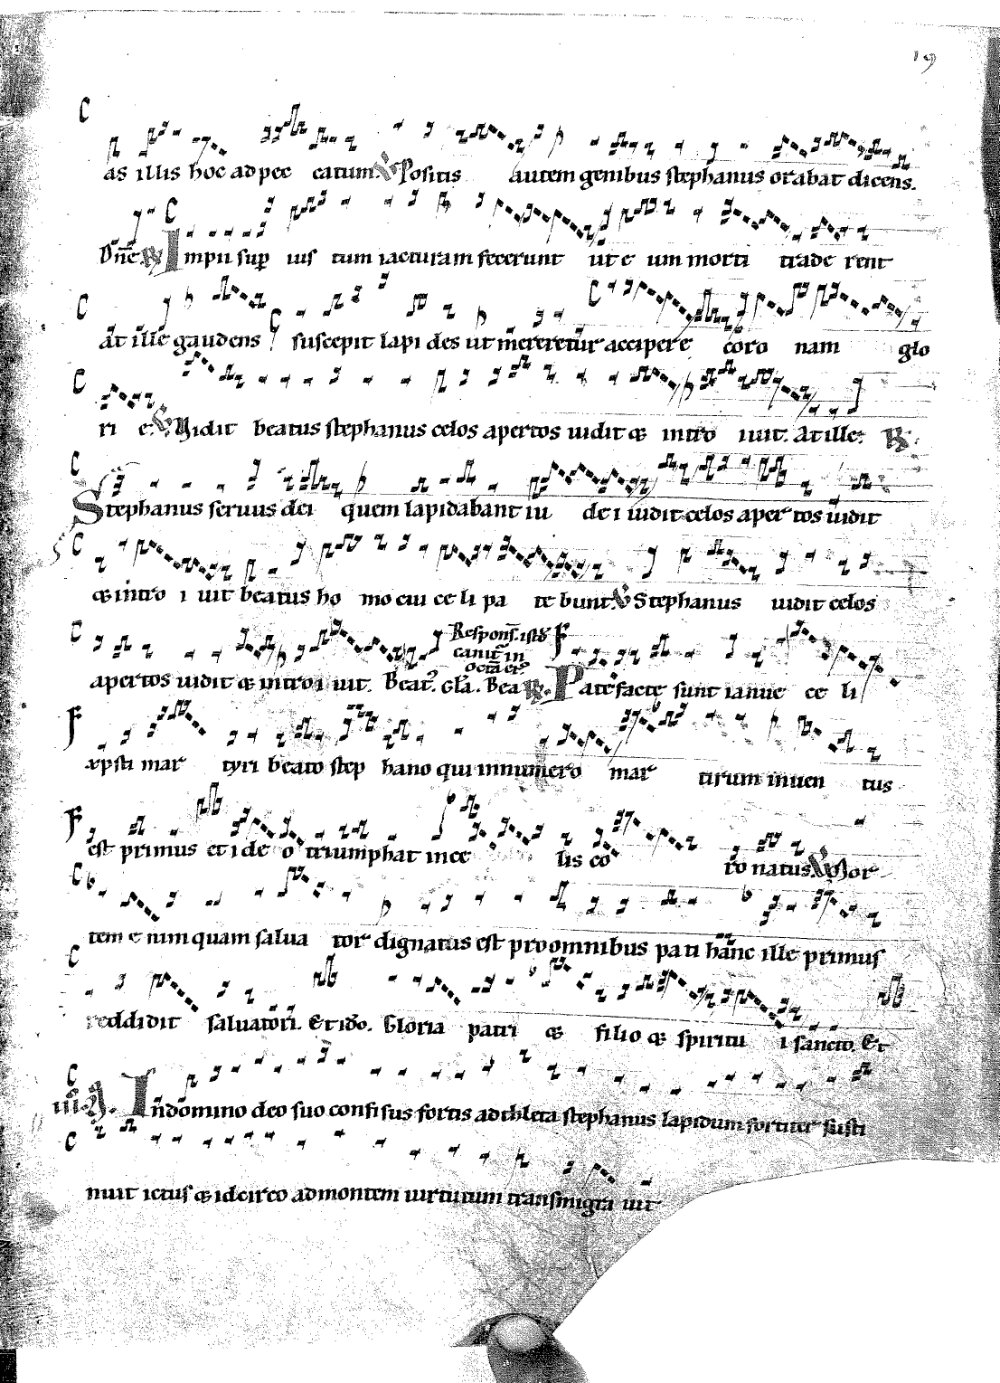 19
as illis hoc ad pec catum. ℣ Positis autem genibus stephanus orabat dicens.
Dn̄e ℟ Impii sup̄ ius tum iacturam fecerunt ut e um morti trade rent
At ille gaudens suscepit lapi des ut mereretur accipere coro nam glo
ri e. ℣ Uidit beatus stephanus celos apertos uidit & intro iuit. At ille. ℟
Stephanus seruus dei quem lapidabant iu de i uidit celos aper tos uidit
& intro i uit beatus ho mo cui ce li pa te bant. ℣ Stephanus uidit celos
apertos uidit & intro i uit. Beat᷒. Gl̄a. Bea ℟. Patefacte sunt ianue ce li
Respons̄. istđ
canit̄ in
xp̄sti mar tyri beato step hano qui in numero mar tirum inuen tus
est primus et i de o triumphat in ce lis co ro natus. ℣ Mor
tem e nim quam salua tor dignatus est pro omnibus pati hanc ille primus
reddidit saluatori. Et iđo. Gloria patri & filio & spiritu i sancto. Et
In domino deo suo confisus fortis adthleta stephanus lapidum fortiter susti
nuit ictus & idcirco ad montem uirtutum transmigra uit